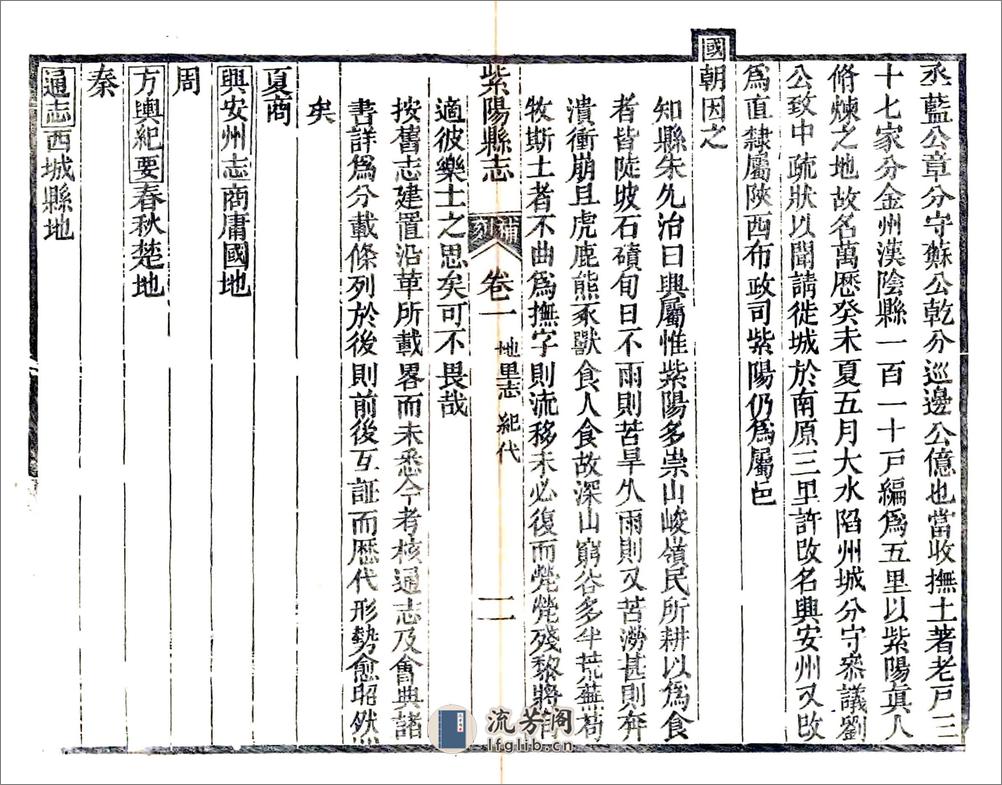 丞藍公章分守蘇公乾分巡邊公億也當收撫土著老戸三
十七家分金州漢陰縣一百一十戸編爲五里以紫陽眞人
脩煉之地故名萬歷癸未夏五月大水陷州城分守叅議劉
公致中疏狀以聞請徙城於南原三里許改名興安州又改
爲直隸屬陝西布政司紫陽仍爲屬邑
國朝因之
知縣朱先治曰興屬惟紫陽多崇山峻嶺民所耕以爲食
者皆陡坡石磧旬日不雨則苦旱久雨則又苦澇甚則奔
潰衝崩且虎鹿熊豕獸食人食故深山窮谷多半荒蕪苟
牧斯土者不曲爲撫字則流移未必復而煢煢殘黎將
適彼樂土之思矣可不畏哉
紫陽縣志 補刻 卷一 地里志 紀代 二
按舊志建置沿革所載畧而未悉今考核通志及會典諸
書詳爲分載條列於後則前後互証而歷代形勢愈昭然
矣
夏商
興安州志商庸國地
周
方輿紀要春秋楚地
秦
通志西城縣地
流芳閣
lfglib.cn